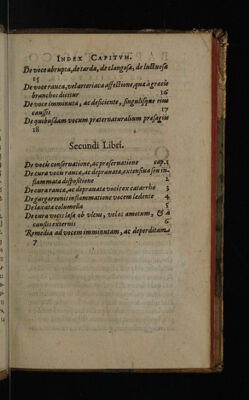 INDEX CAPITVM.
De voce abrupta, de tarda, de clangosa, de luctuosa
15
De voce rauca, vel arteriaca affectione, quæ a græcis
branchos dicitur 16
De voce imminuta, ac deficiente, singulisque eius
caussis 17
De quibusdam vocum præternaturalium præsagiis
18
Secundi Libri.
De vocis conseruatione, ac præseruatione cap. 1
De cura vocis rauca, ac deprauata, ex
flammata dispositione 2
De cura rauca, ac deprauatæ vocis ex catarrho 3
De gargareonis inflammatione vocem ledente 4
De laxata columella 5
De cura vocis læsa ob vlcus, velos amotum, & à
causis externis 6
Remedia ad vocem imminutam, ac deperditam
7